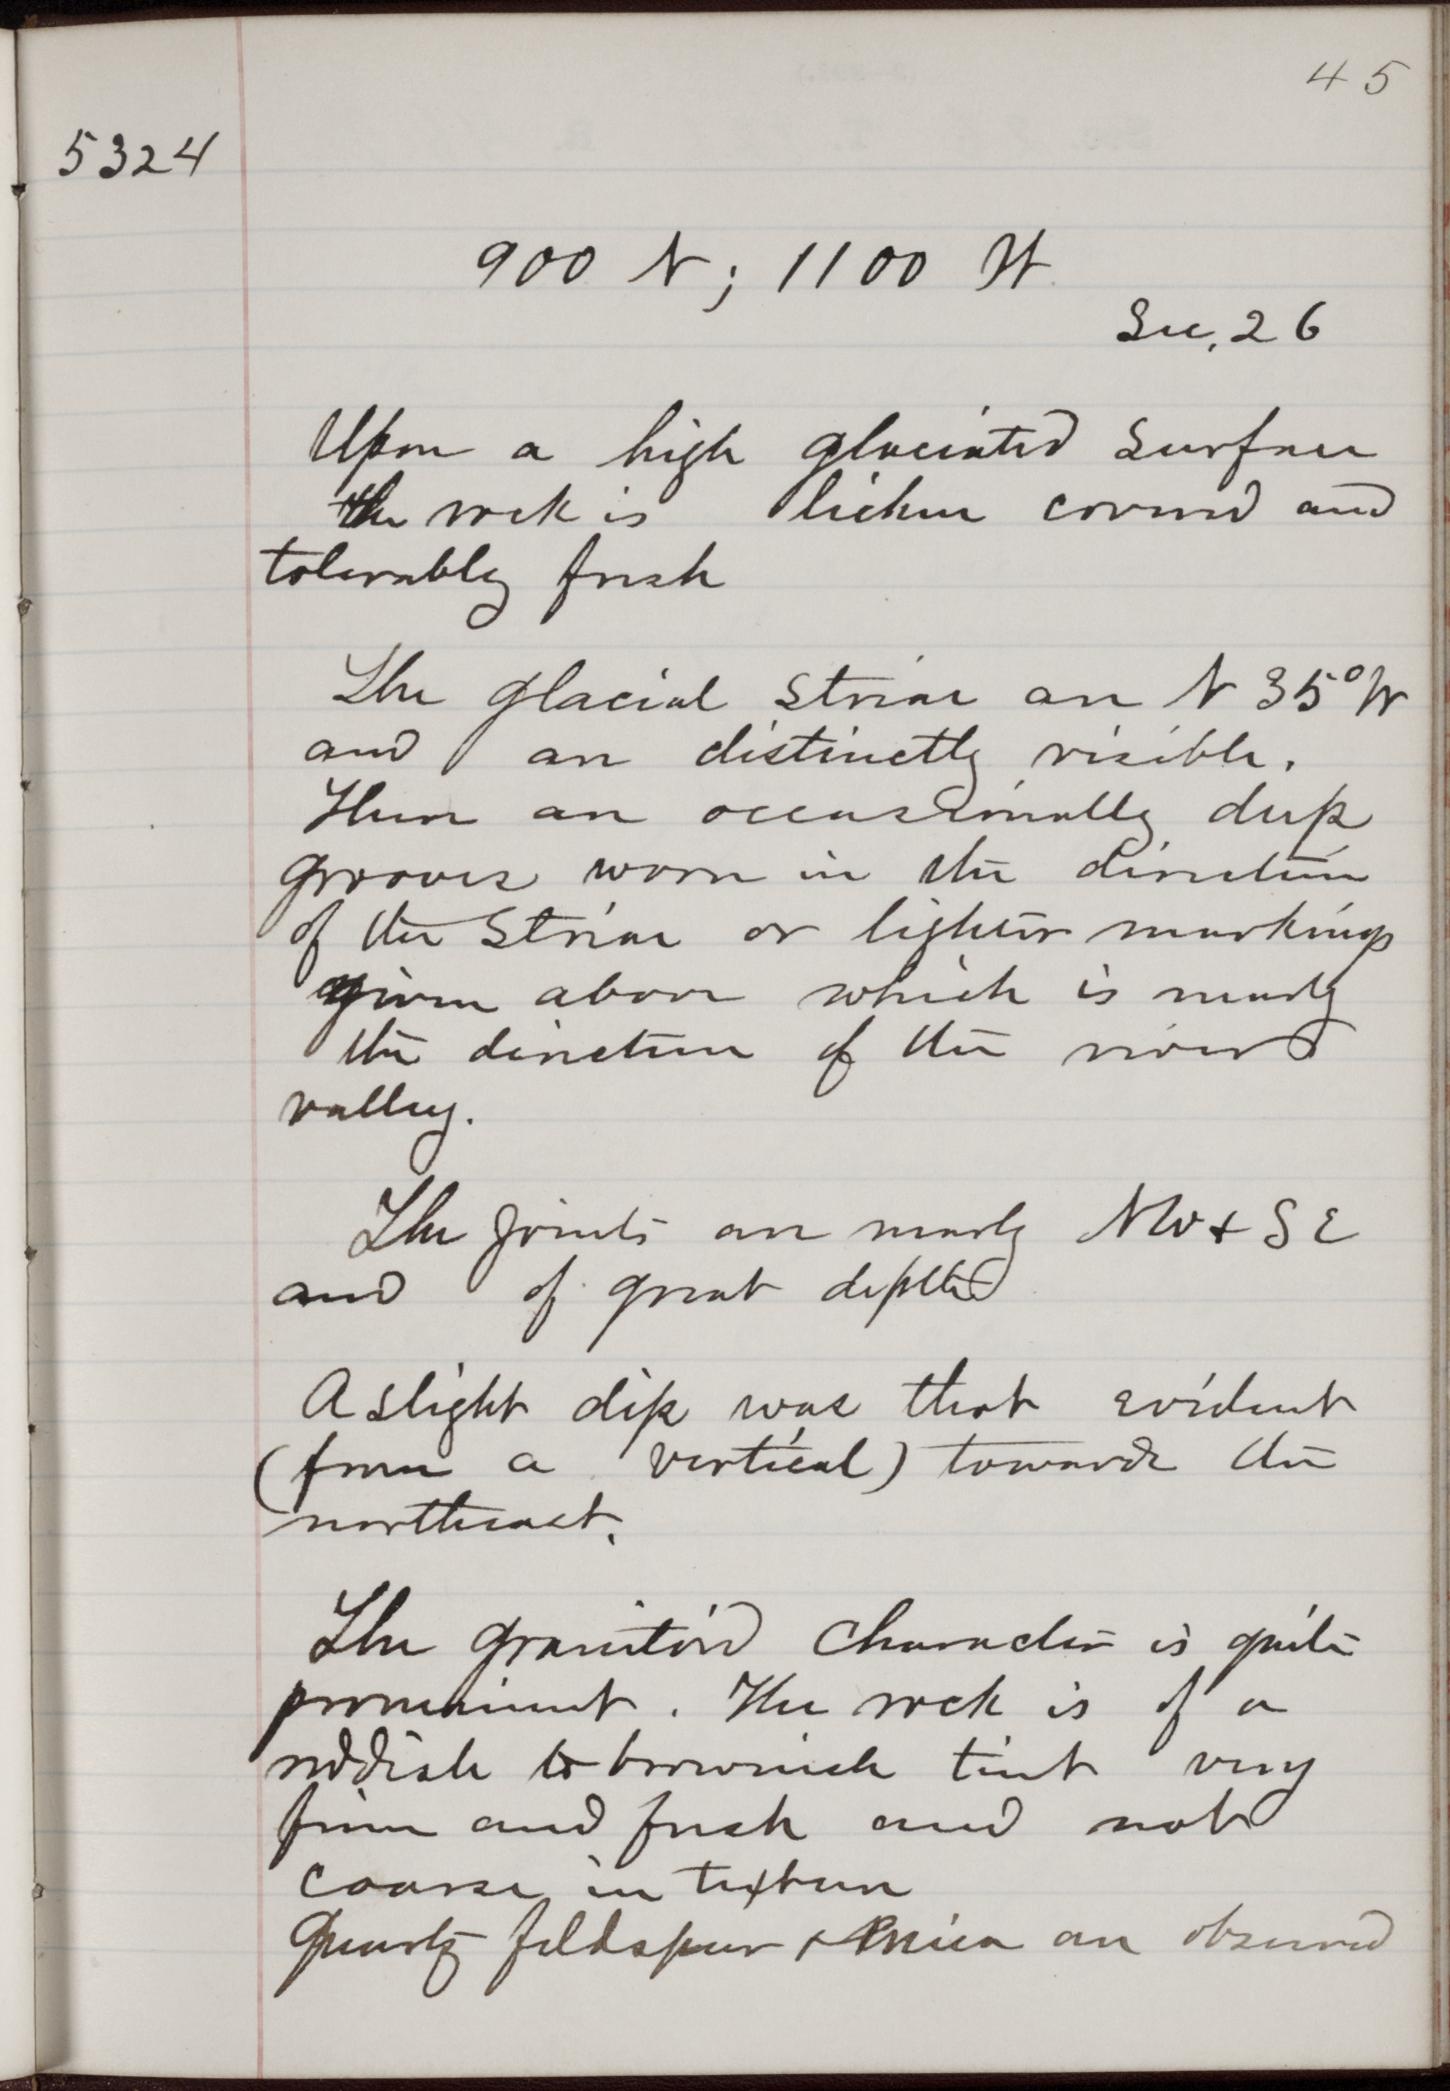 45
5324
900 N; 1100 W
Sec. 26
Upon a high glaciated surface
the rock is lichen covered and
tolerably fresh
The glacial striae are N 35° W
and are distinctly visible.
There are occasionally deep
grooves worn in the direction
of the striae or lighter markings
given above which is nearly
the direction of the river
valley.
The joints are nearly NW + SE
and of great depth
A slight dip was that evident
(from a vertical) towards the
northeast.
The granitoid character is quite
prominent. The rock is of a
reddish to brownish tint very
firm and fresh and not
coarse in texture
Quartz feldspar + mica are observed